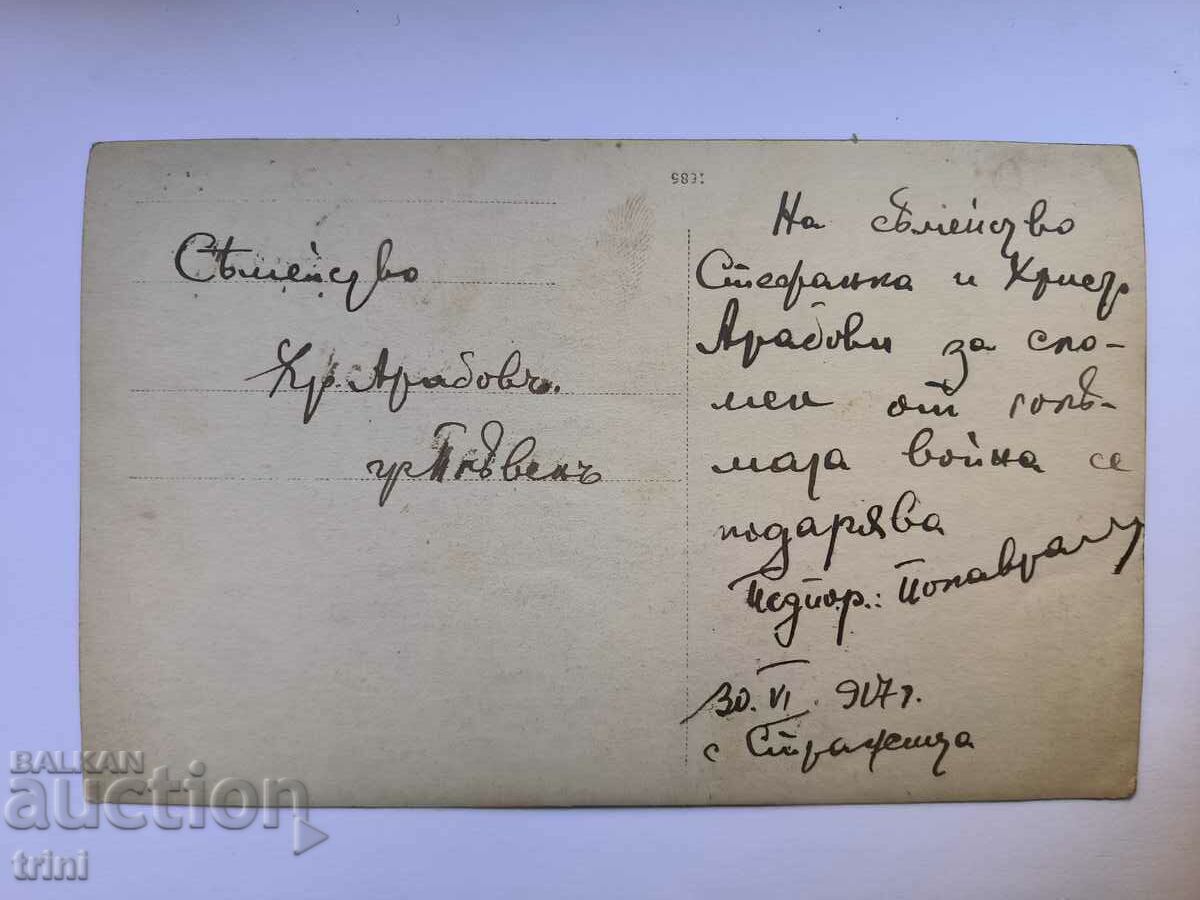 1685
Сѣмейство
Хр. Арабовъ.
гр Плѣвенъ
На сѣмейство
Стефанка и Христо
Арабови за спо-
мен от голѣ-
мата война се
подарява
30. VI. 917 г.
с Стражица
BALKAN
auction
trini